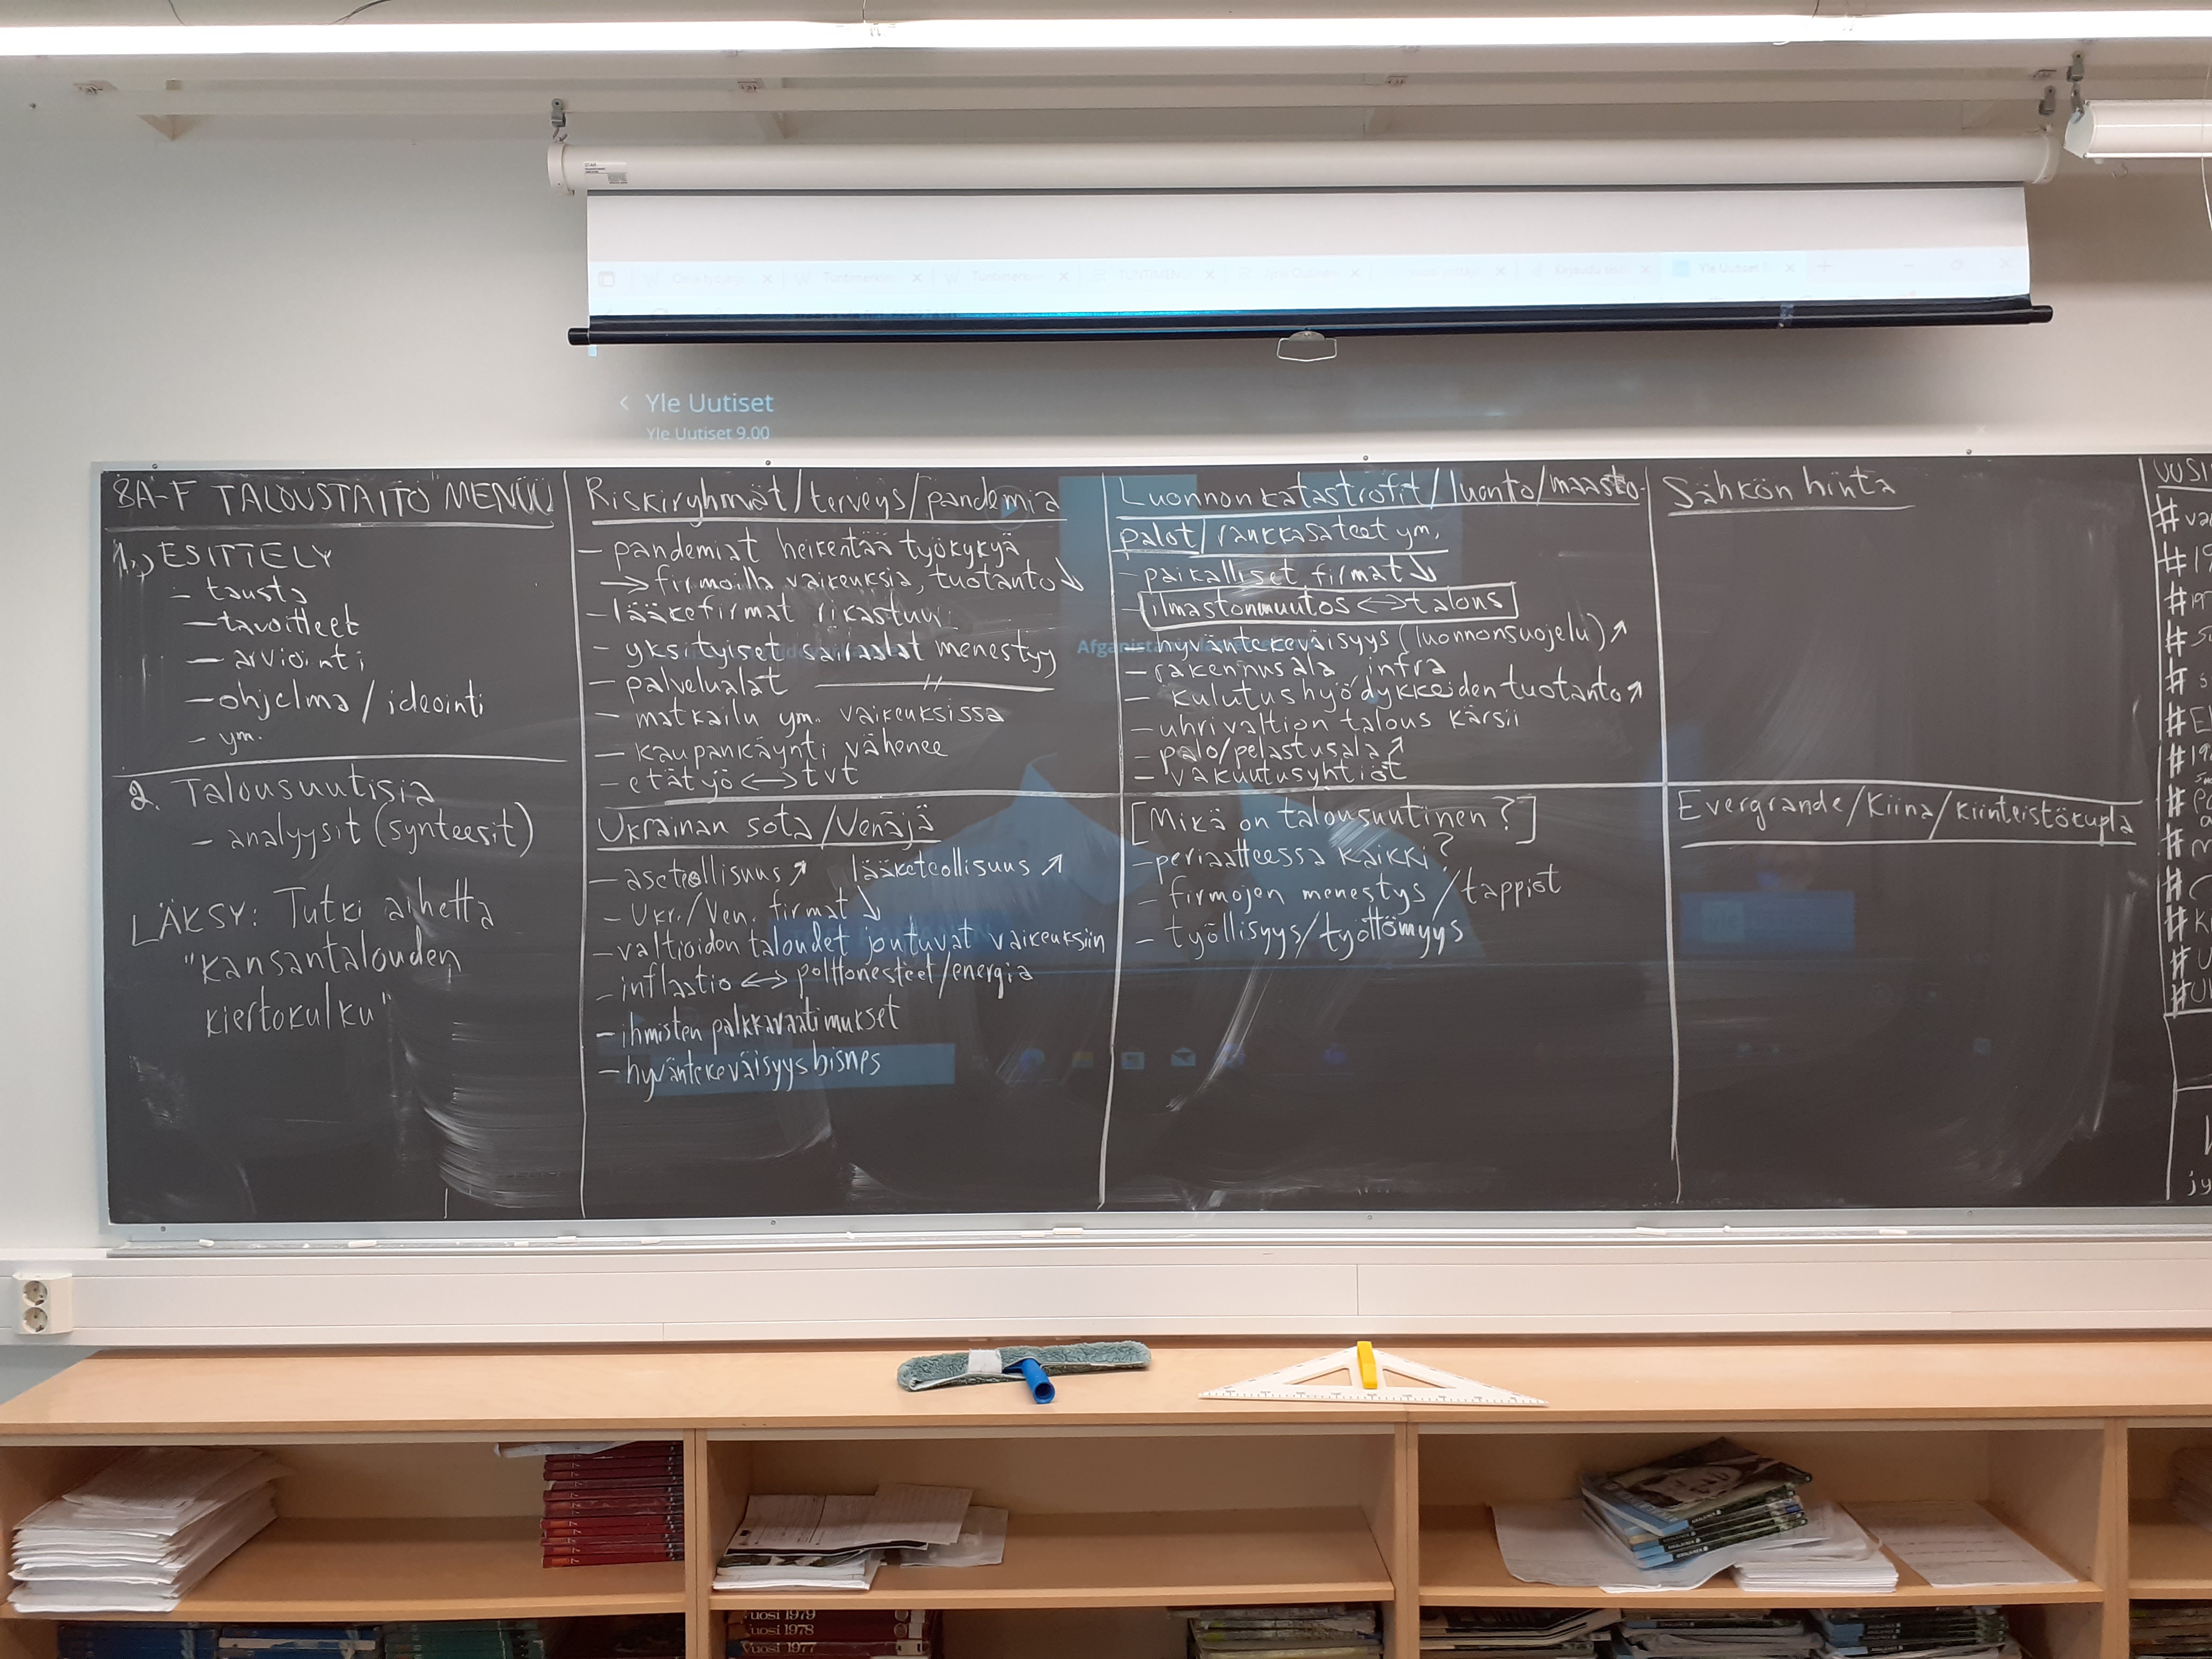 Yle Uutiset
Yle Uutiset 9.00
8A-F TALOUSTAITO "MENUU
1.) ESITTELY
- tausta
- tavoitteet
- arviointi
- ohjelma / ideointi
- ym.
2. Talousuutisia
- analyysit (synteesit)
LÄKSY: Tutki aihetta
"kansantalouden
kiertokulku"
Riskiryhmät/terveys/pandemia
- pandemiat heikentää työkykyä
-> firmoilla vaikeuksia, tuotanto ↘
- lääkefirmat rikastuu
- yksityiset sairaalat menestyy
- palvelualat —〃—
- matkailu ym. vaikeuksissa
- kaupankäynti vähenee
- etätyö <-> tvt
Ukrainan sota /Venäjä
- aseteollisuus ↗ lääketeollisuus ↗
- Ukr./Ven. firmat ↘
- valtioiden taloudet joutuvat vaikeuksiin
- inflaatio <-> polttonesteet/energia
- ihmisten palkkavaatimukset
- hyväntekeväisyysbisnes
Luonnonkatastrofit/luonto/maasto-
palot/rankkasateet ym.
- paikalliset firmat ↘
- ilmastonmuutos <-> talous
- hyväntekeväisyys (luonnonsuojelu) ↗
- rakennusala infra
- kulutushyödykkeiden tuotanto ↗
- uhrivaltion talous kärsii
- palo/pelastusala ↗
- vakuutusyhtiöt
[Mikä on talousuutinen ?]
- periaatteessa kaikki?
- firmojen menestys / tappiot
- työllisyys/työttömyys
Sähkön hinta
Evergrande/Kiina/kiinteistökupla
Vuosi 1979
Vuosi 1978
Vuosi 1977